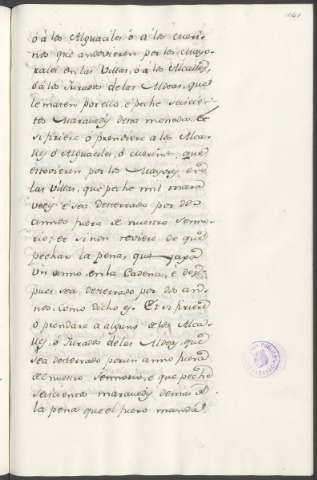 ó á los Alguaciles ó á los meri-
nos que andovieren por los mayo-
rales en las Villas, ó á los Alcalles,
ó á los Jurados de las Aldeas, que
le maten por ello, é peche seiscien-
tos Maravedis desta moneda. Et
si firiere ó prendiere á los Alcal-
les ó Alguaciles, ó merinos, que
estovieren por los mayores, en
las Villas, que peche mil mara-
vedis é sea desterrado por dos
annos fuera de nuestro Senno-
rio; et si non oviere de que
pechar la pena, que yaga
un anno en la Cadena, é des-
pues sea desterrado por dos an-
nos, como dicho es. Et si firiere
ó prendare á alguno de los Alca-
lles, ó Jurados de las Aldeas, que
sea desterrado por un anno fuera
de nuestro Sennorio, é que peche
seiscientos maravedis, demas de
la pena que el fuero manda.